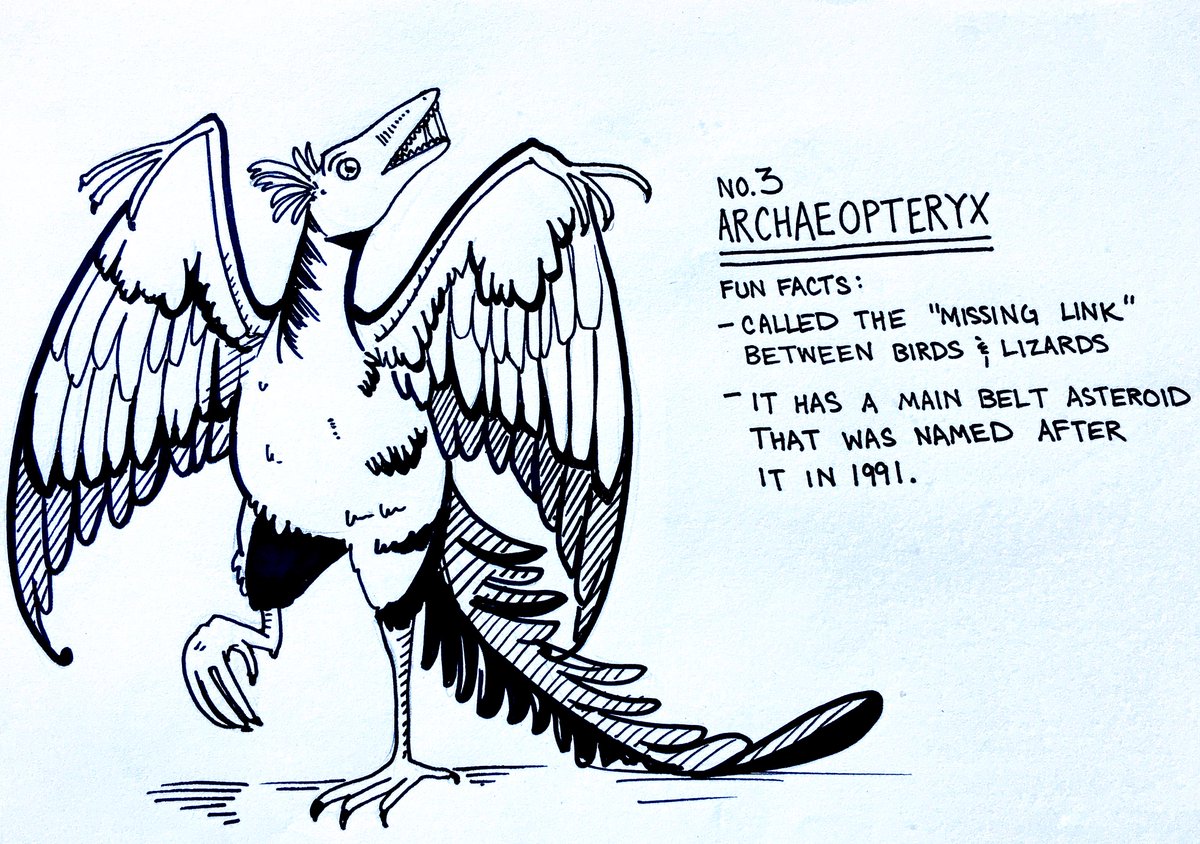 NO.3
ARCHAEOPTERYX
FUN FACTS:
- CALLED THE "MISSING LINK"
BETWEEN BIRDS & LIZARDS
- IT HAS A MAIN BELT ASTEROID
THAT WAS NAMED AFTER
IT IN 1991.